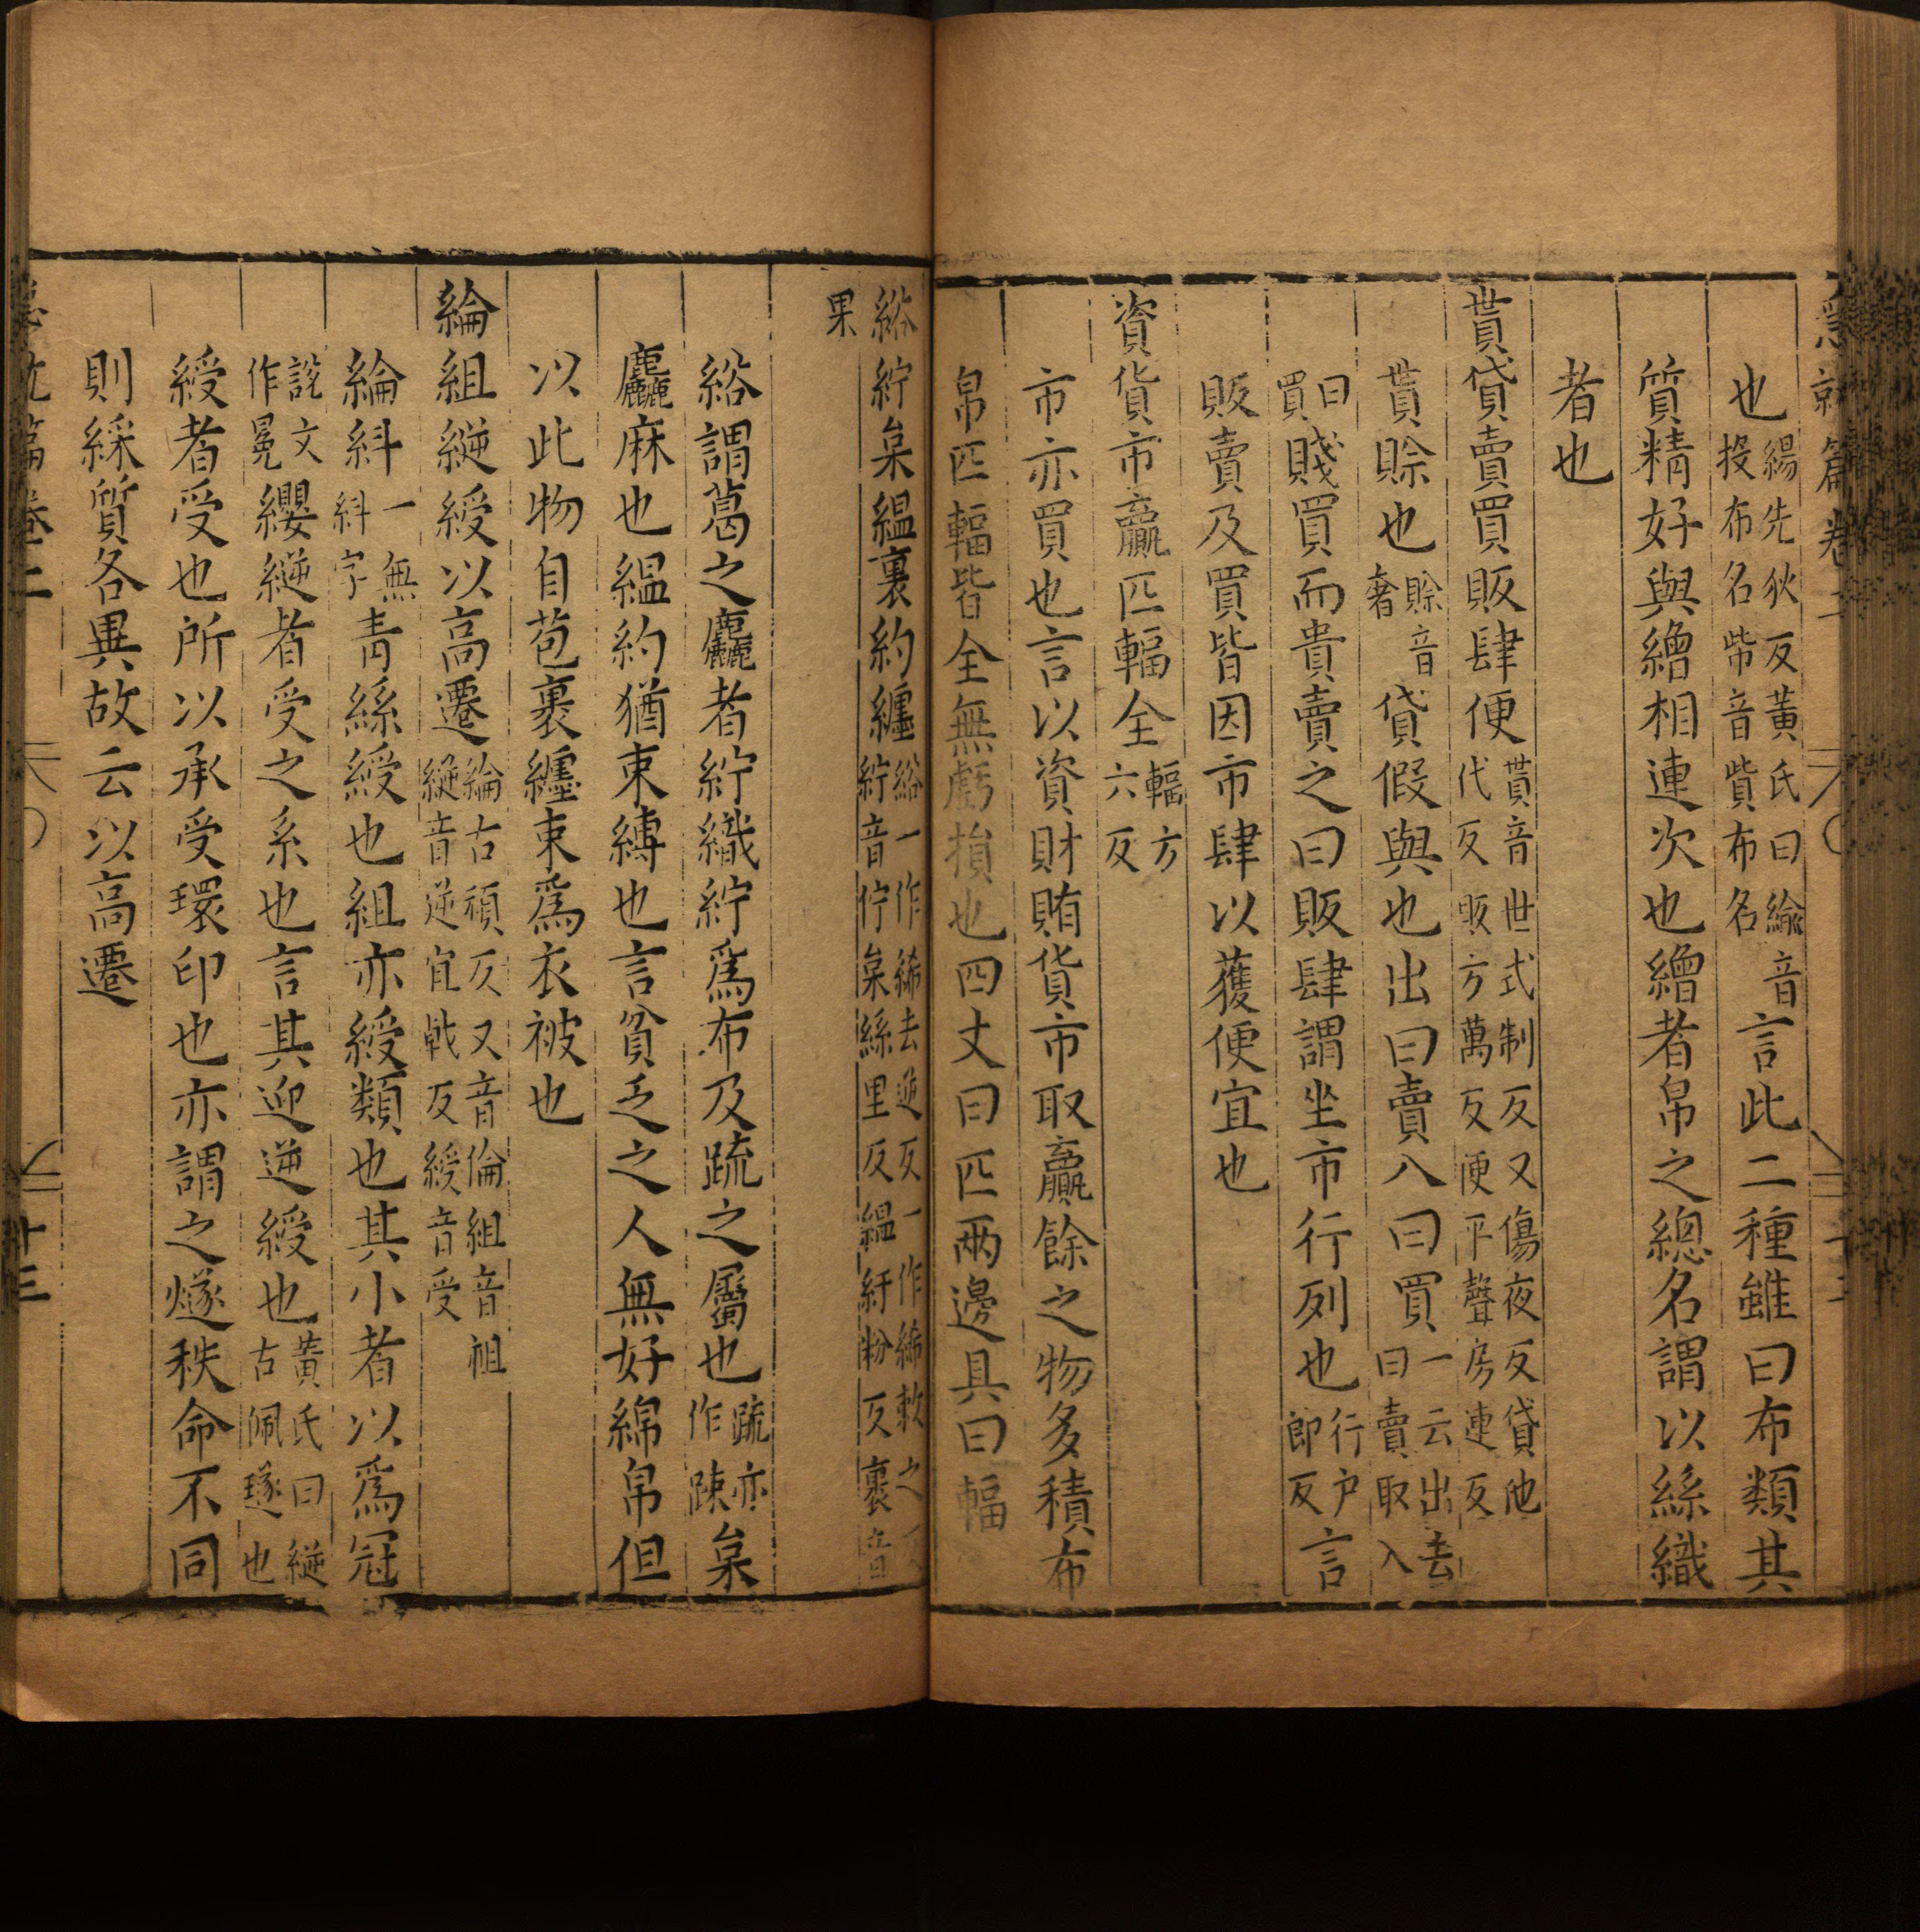 急就篇卷二
也緆先狄反黃氏曰緰音投布名幋音貲布名言此二種雖曰布類其
質精好與繒相連次也繒者帛之總名謂以絲織
者也
貰貸賣買販肆便貰音世式制反又傷夜反貸他代反販方萬反便平聲房連反
貰賒也賒音奢貸假與也出曰賣入曰買一云出去曰賣取入
曰買賤買而貴賣之曰販肆謂坐市行列也行户郎反言
販賣及買皆因市肆以獲便宜也
資貨市贏匹幅全幅方六反
市亦買也言以資財賄貨市取贏餘之物多積布
帛匹幅皆全無虧損也四丈曰匹兩邊具曰幅
綌紵枲縕裹約纏綌一作絺去逆反一作絺敕之反紵音佇枲絲里反縕紆粉反裹音
果
綌謂葛之麤者紵織紵爲布及疏之屬也疏亦作踈枲
麤麻也縕約猶束縛也言貧乏之人無好綿帛但
以此物自苞裹纏束爲衣被也
綸組縌綬以高遷綸古頑反又音倫組音祖縌音逆宜戟反綬音受
綸糾一無糾字青絲綬也組亦綬類也其小者以爲冠
説文作冕纓縌者受之系也言其迎逆綬也黃氏曰縌古佩璲也
綬者受也所以承受環印也亦謂之燧秩命不同
則綵質各異故云以高遷
急就篇卷二
十三